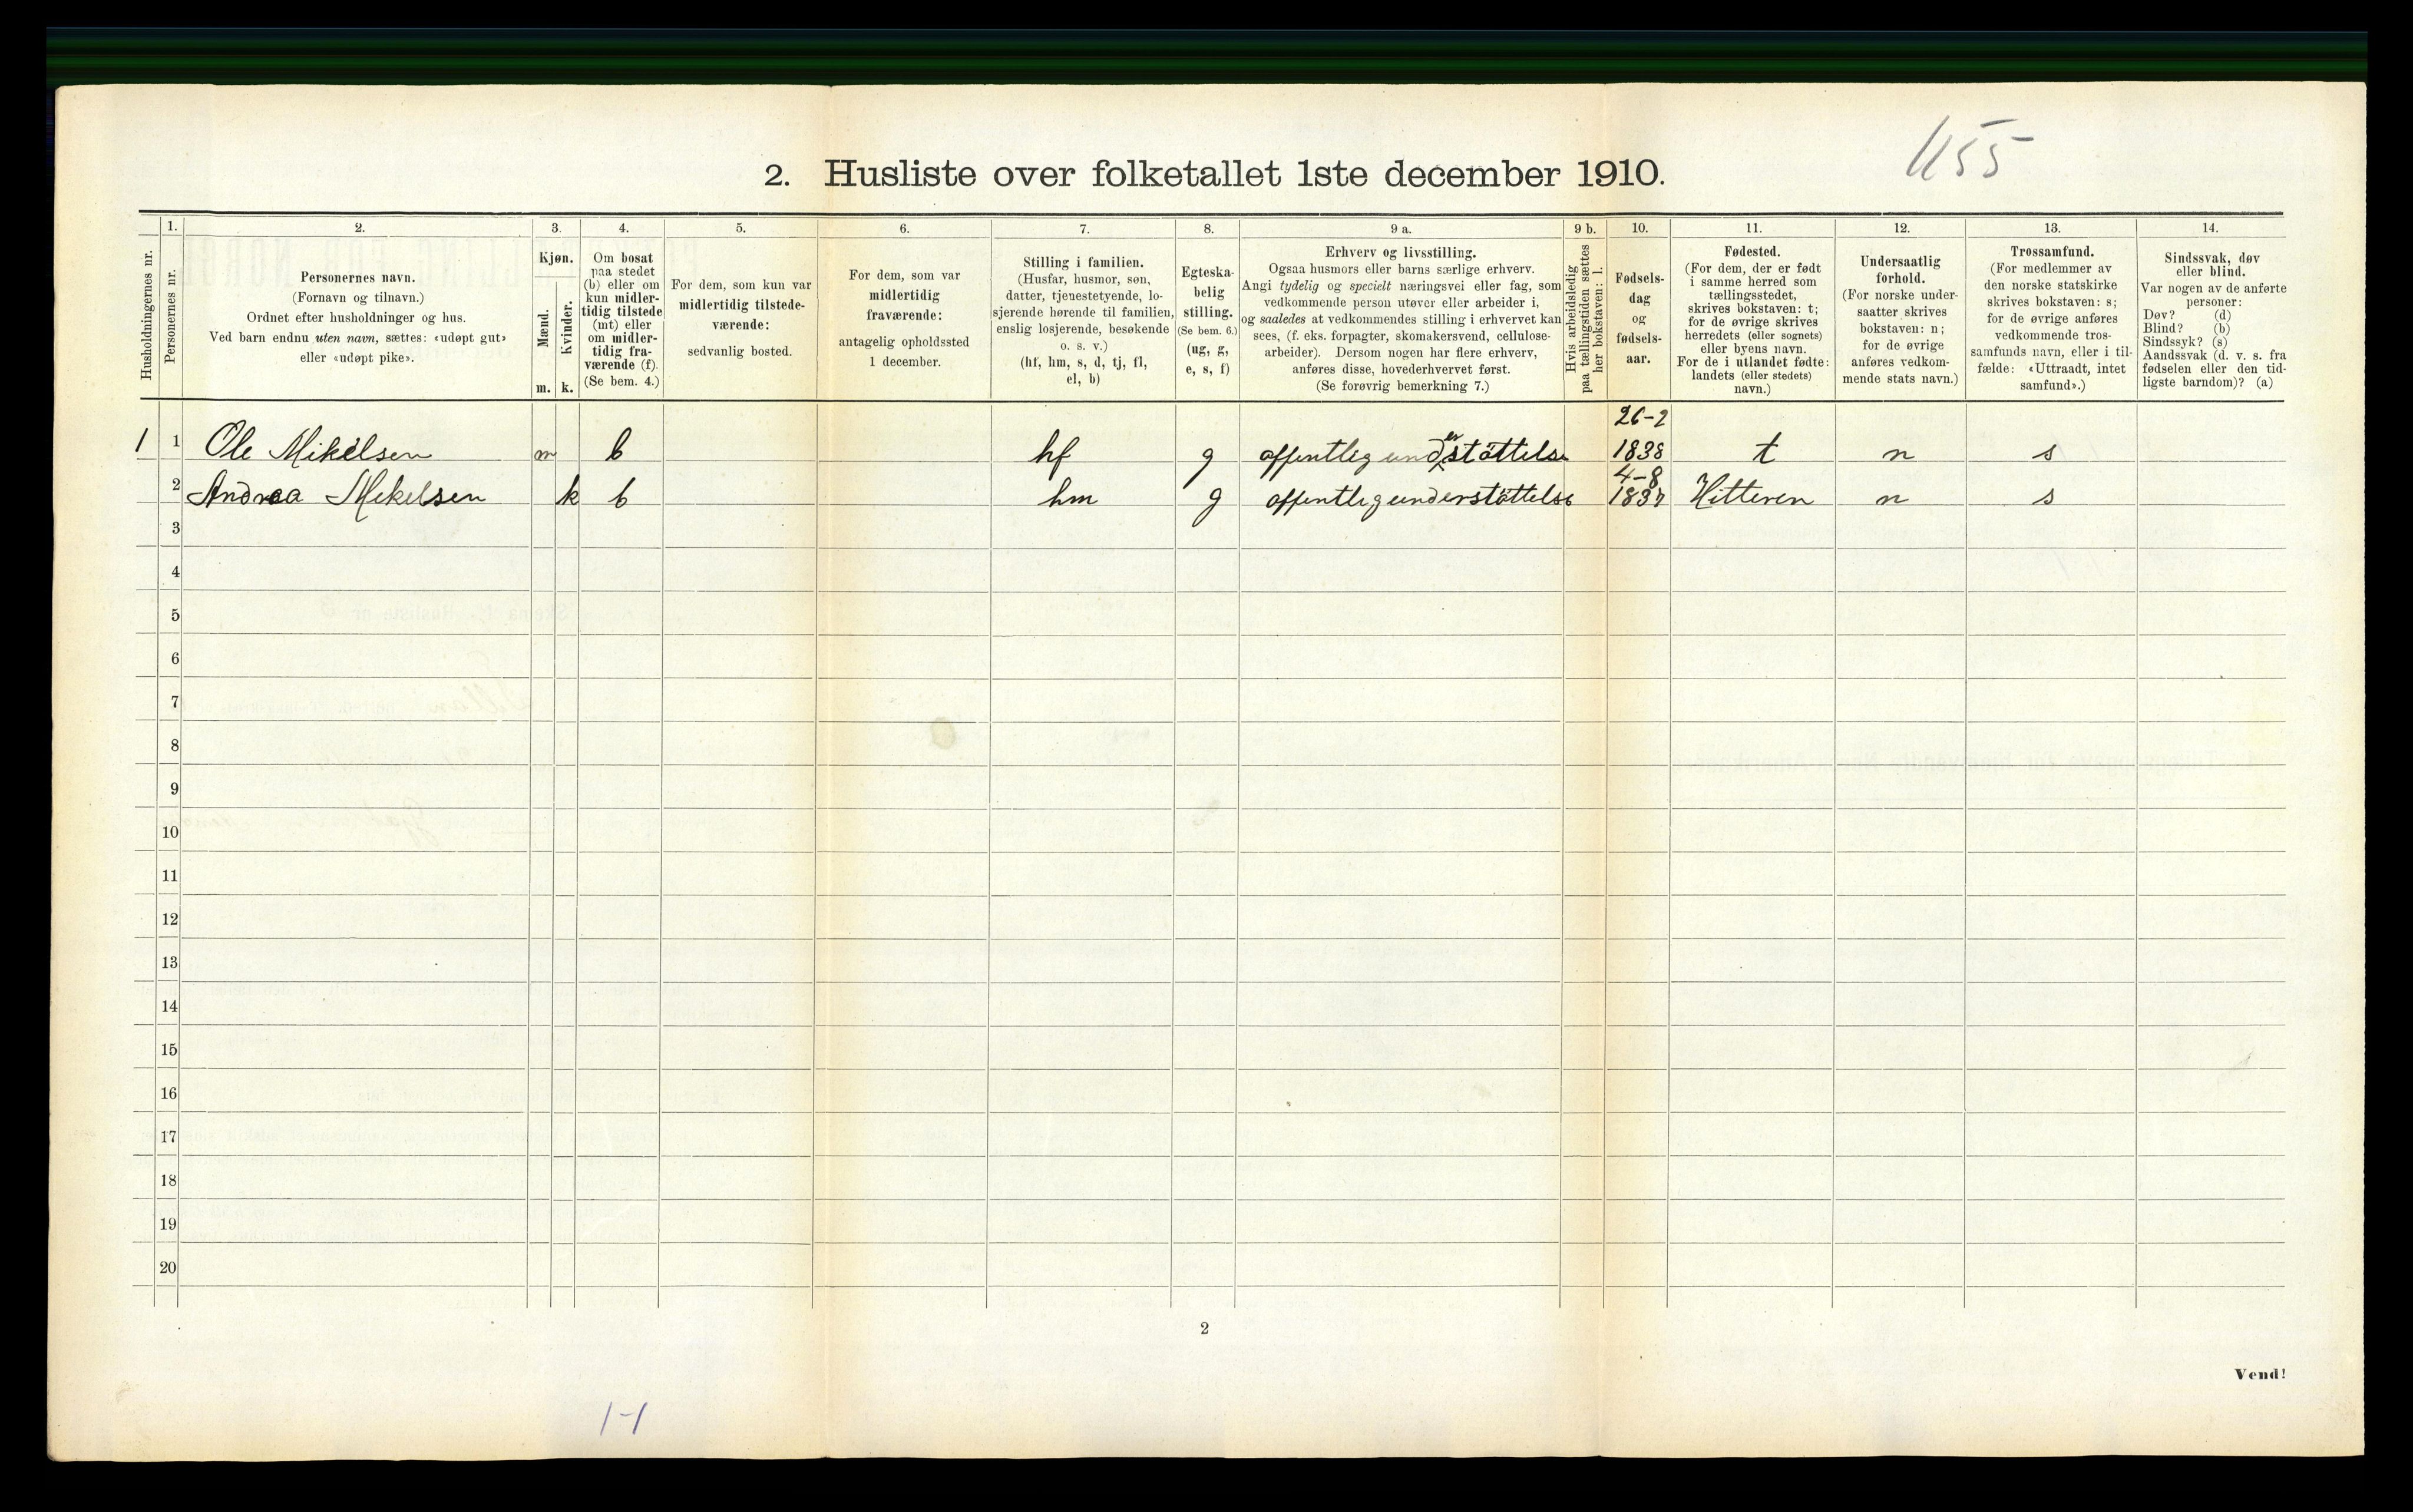 1155
2. Husliste over folketallet 1ste december 1910.
Husholdningernes nr.
1.
Personernes nr.
2.
Personernes navn.
(Fornavn og tilnavn.)
Ordnet efter husholdninger og hus.
Ved barn endnu uten navn, sættes: «udøpt gut»
eller «udøpt pike».
3.
Kjøn.
Mænd.
m.
Kvinder.
k.
4.
Om bosat
paa stedet
(b) eller om
kun midler-
tidig tilstede
(mt) eller
om midler-
tidig fra-
værende (f).
(Se bem. 4.)
5.
For dem, som kun var
midlertidig tilstede-
værende:
sedvanlig bosted.
6.
For dem, som var
midlertidig
fraværende:
antagelig opholdssted
1 december.
7.
Stilling i familien.
(Husfar, husmor, søn,
datter, tjenestetyende, lo-
sjerende hørende til familien,
enslig losjerende, besøkende
o. s. v.)
(hf, hm, s, d, tj, fl,
el, b)
8.
Egteska-
belig
stilling.
(Se bem. 6.)
(ug, g,
e, s, f)
9 a.
Erhverv og livsstilling.
Ogsaa husmors eller barns særlige erhverv.
Angi tydelig og specielt næringsvei eller fag, som
vedkommende person utøver eller arbeider i,
og saaledes at vedkommendes stilling i erhvervet kan
sees, (f. eks. forpagter, skomakersvend, cellulose-
arbeider). Dersom nogen har flere erhverv,
anføres disse, hovederhvervet først.
(Se forøvrig bemerkning 7.)
9 b.
Hvis arbeidsledig
paa tællingstiden sættes
her bokstaven: l.
10.
Fødsels-
dag
og
fødsels-
aar.
11.
Fødested.
(For dem, der er født
i samme herred som
tællingsstedet,
skrives bokstaven: t;
for de øvrige skrives
herredets (eller sognets)
eller byens navn.
For de i utlandet fødte:
landets (eller stedets)
navn.)
12.
Undersaatlig
forhold.
(For norske under-
saatter skrives
bokstaven: n;
for de øvrige
anføres vedkom-
mende stats navn.)
13.
Trossamfund.
(For medlemmer av
den norske statskirke
skrives bokstaven: s;
for de øvrige anføres
vedkommende tros-
samfunds navn, eller i til-
fælde: «Uttraadt, intet
samfund».)
14.
Sindssvak, døv
eller blind.
Var nogen av de anførte
personer:
Døv? (d)
Blind? (b)
Sindssyk? (s)
Aandssvak (d. v. s. fra
fødselen eller den tid-
ligste barndom)? (a)
26-2
1 1 Ole Mikelsen m b hf g offentlig understöttelse 1838 t n s
4-8
2 Andrea Mikelsen k b hm g offentlig understöttelse 1837 Hitteren n s
3
4
5
6
7
8
9
10
11
12
13
14
15
16
17
18
19
20
2
Vend!
1-1